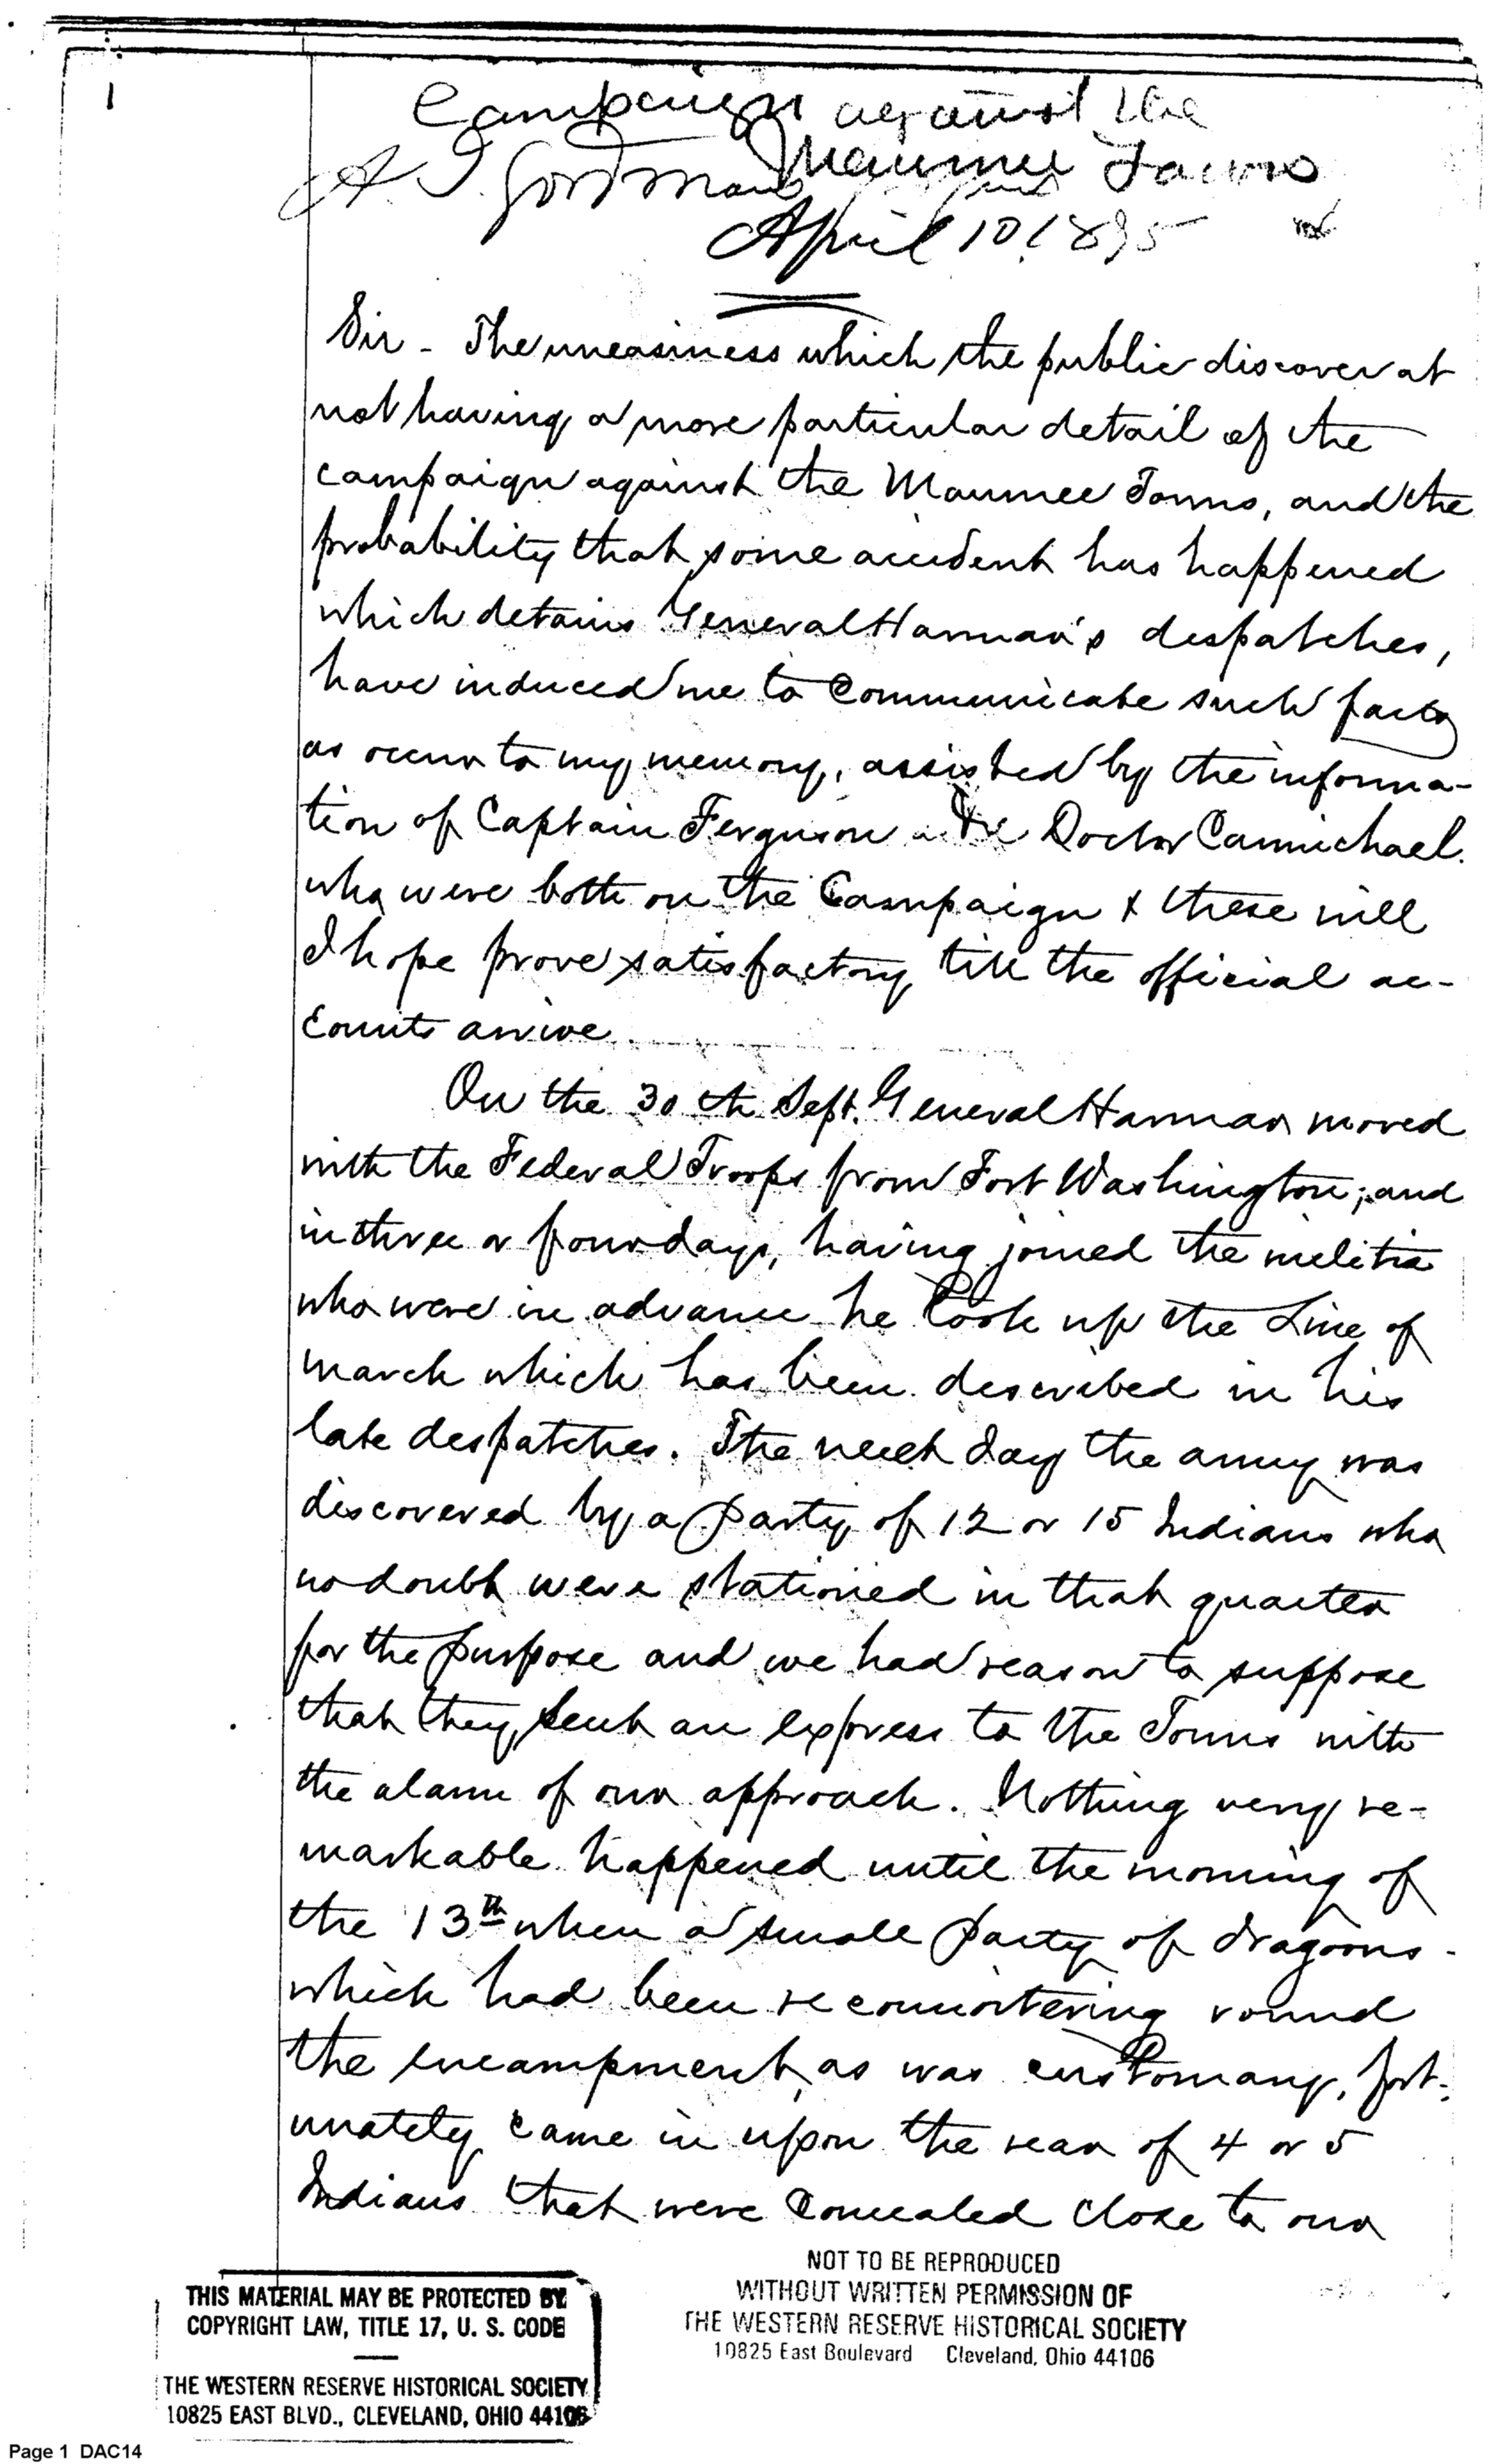 1
Campaign against the
Maumee Towns
A. T. Goodman
April 10, 1895
Sir - The uneasiness which the public discover at
not having a more particular detail of the
campaign against the Maumee Towns, and the
probability that some accident has happened
which detains General Harmar's despatches,
have induced me to communicate such facts
as occur to my memory, assisted by the informa-
tion of Captain Ferguson and Doctor Carmichael.
who were both on the Campaign & these will
I hope prove satisfactory till the official ac-
counts arrive.
On the 30th Sept. General Harmar moved
with the Federal Troops from Fort Washington; and
in three or four days, having joined the militia
who were in advance he took up the Line of
march which has been described in his
late despatches. The next day the army was
discovered by a party of 12 or 15 Indians who
no doubt were stationed in that quarter
for the purpose and we had reason to suppose
that they sent an express to the Towns with
the alarm of our approach. Nothing very re-
markable happened until the morning of
the 13th when a small party of dragoons
which had been reconnoitering round
the encampment, as was customary, fort-
unately came in upon the rear of 4 or 5
Indians that were concealed close to our
NOT TO BE REPRODUCED
WITHOUT WRITTEN PERMISSION OF
THE WESTERN RESERVE HISTORICAL SOCIETY
10825 East Boulevard Cleveland, Ohio 44106
THIS MATERIAL MAY BE PROTECTED BY
COPYRIGHT LAW, TITLE 17, U. S. CODE
THE WESTERN RESERVE HISTORICAL SOCIETY
10825 EAST BLVD., CLEVELAND, OHIO 44106
Page 1 DAC14